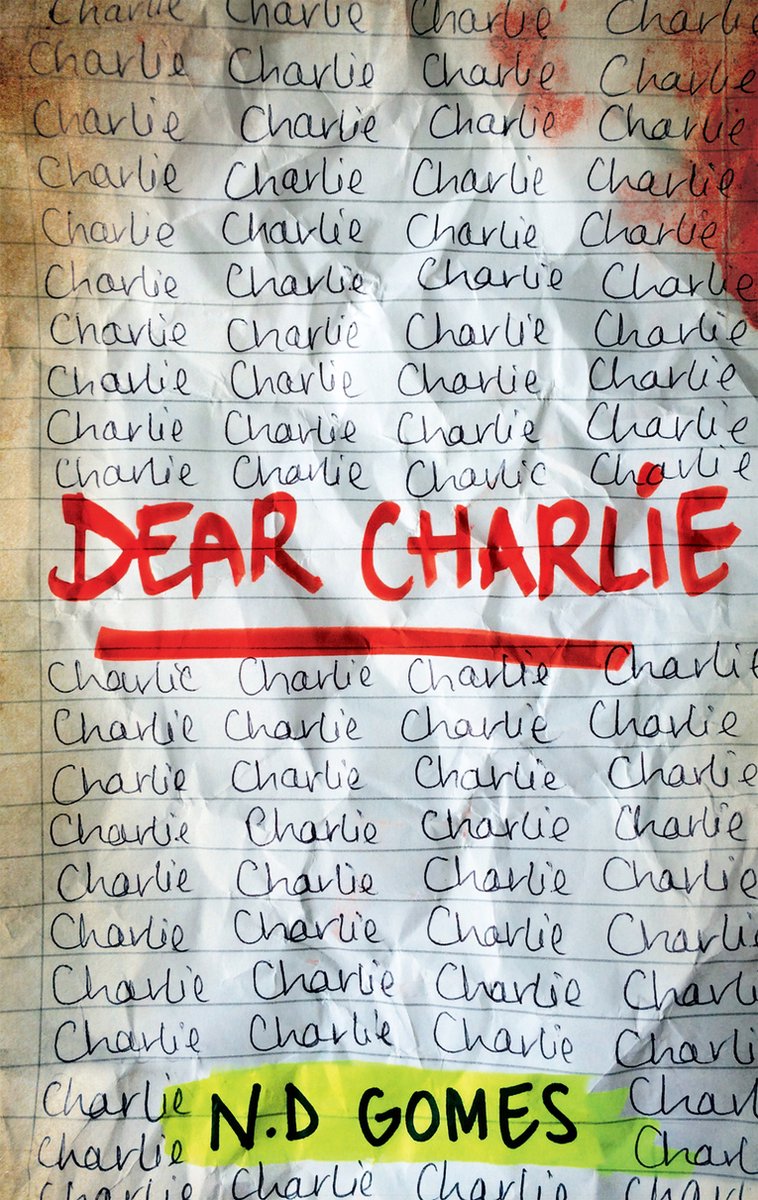 Charlie Charlie Charlie Charlie
Charlie Charlie Charlie Charlie
Charlie Charlie Charlie Charlie
Charlie Charlie Charlie Charlie
Charlie Charlie Charlie Charlie
Charlie Charlie Charlie Charlie
Charlie Charlie Charlie Charlie
Charlie Charlie Charlie Charlie
Charlie Charlie Charlie Charlie
Charlie Charlie Charlie Charlie
DEAR CHARLIE
Charlie Charlie Charlie Charlie
Charlie Charlie Charlie Charlie
Charlie Charlie Charlie Charlie
Charlie Charlie Charlie Charlie
Charlie Charlie Charlie Charlie
Charlie Charlie Charlie Charli
Charlie Charlie Charlie Charl
Charlie Charlie Charlie Charli
Charlie N.D GOMES Charl
Charlie Charl
Charlie Charlie Charlie Charlie